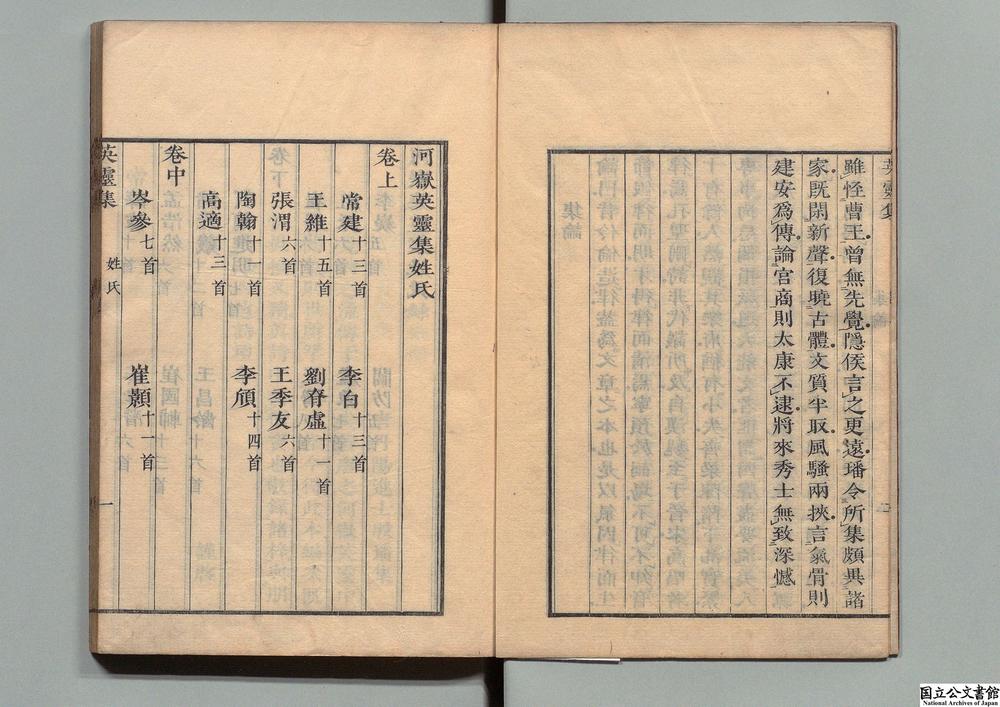 雖怪曹王曾無先覺隱侯言之更遠璠今所集頗異諸
家既閑新聲復曉古體文質半取風騷兩挾言氣骨則
建安爲傳論宮商則太康不逮將來秀士無致深憾
河嶽英靈集姓氏
卷上
常建十三首 李白十三首
王維十五首 劉脊虛十一首
張渭六首 王季友六首
陶翰十一首 李頎十四首
高適十三首
卷中
岑參七首 崔顥十一首
英靈集 姓氏 一
国立公文書館
National Archives of Japan